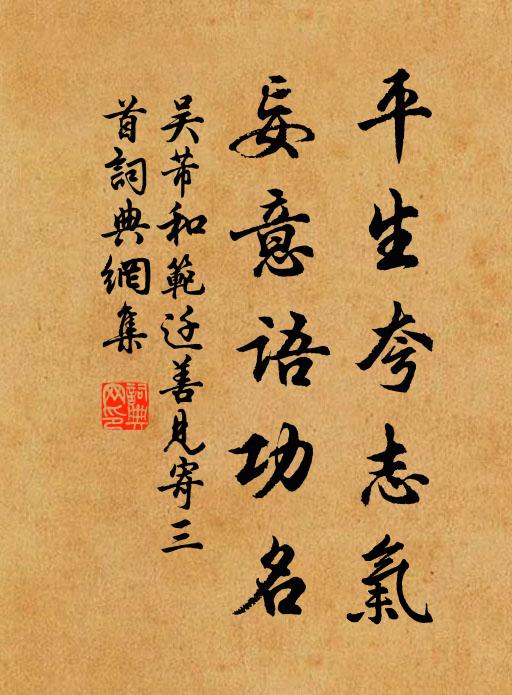 平生夸志氣
妄意語功名
吴芾和範迁善見寄三
首詞典網集
詞典
网印